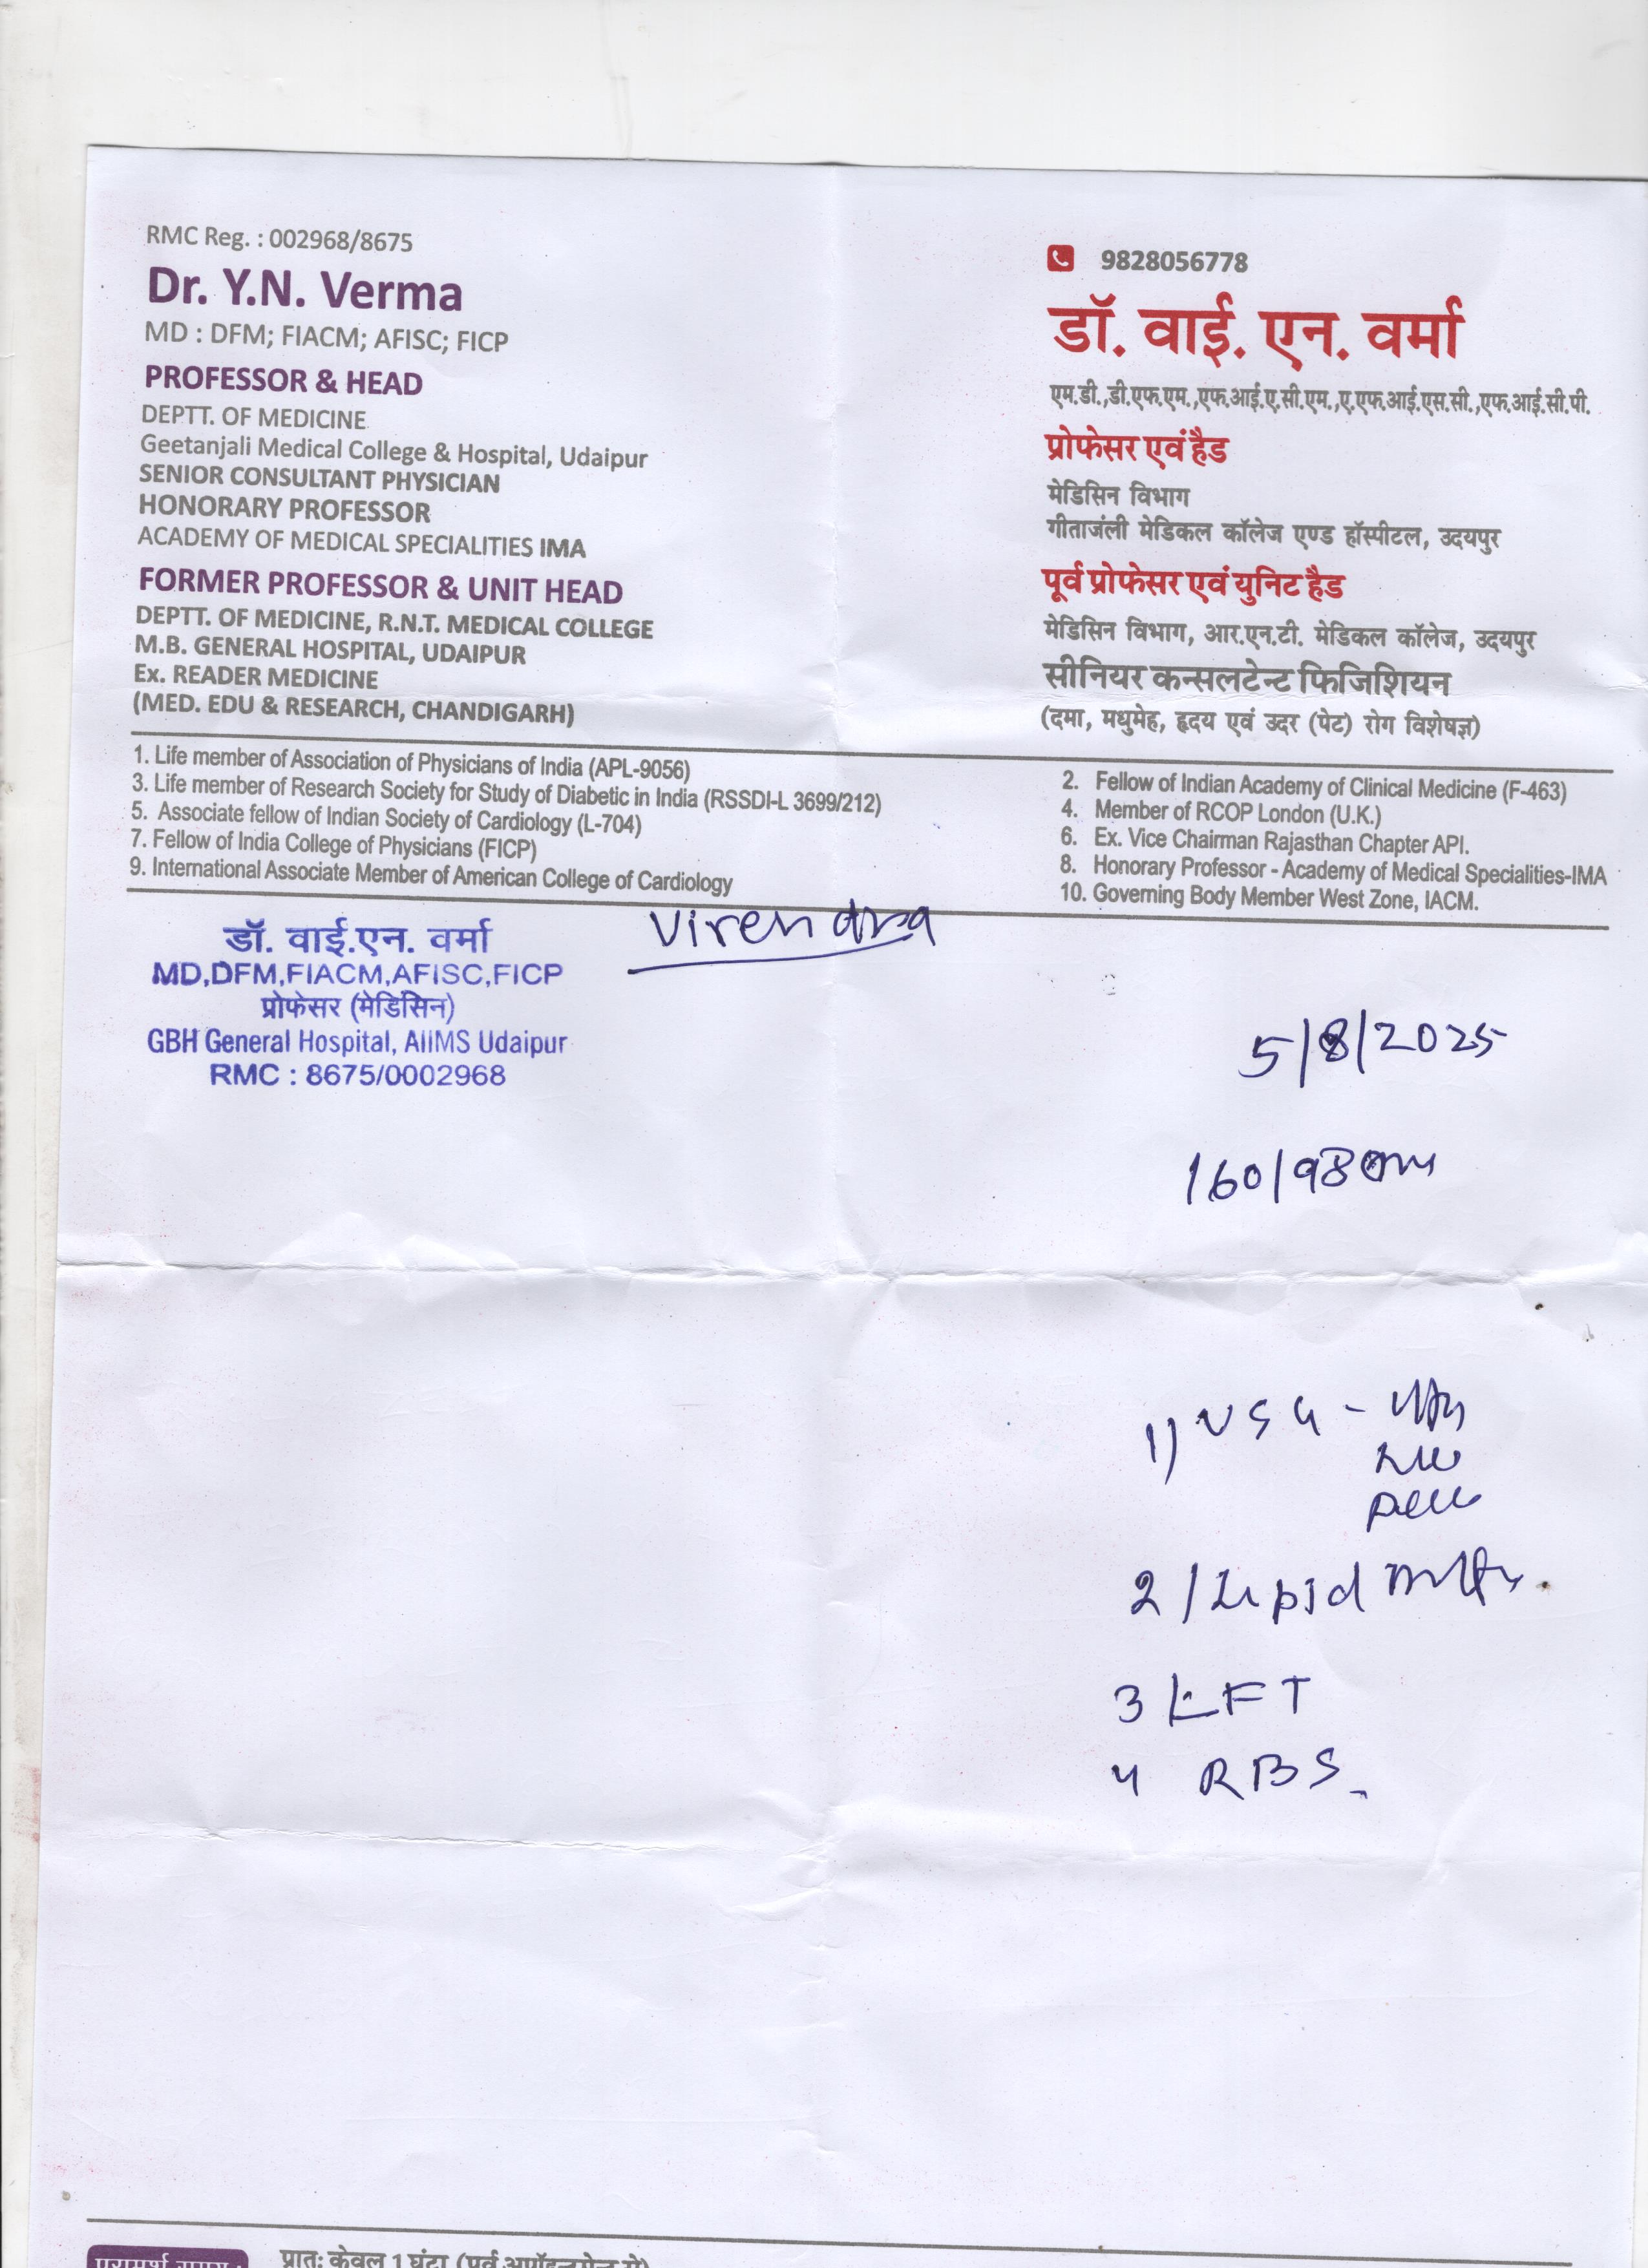 RMC Reg. : 002968/8675
Dr. Y.N. Verma
MD : DFM; FIACM; AFISC; FICP
PROFESSOR & HEAD
DEPTT. OF MEDICINE
Geetanjali Medical College & Hospital, Udaipur
SENIOR CONSULTANT PHYSICIAN
HONORARY PROFESSOR
ACADEMY OF MEDICAL SPECIALITIES IMA
FORMER PROFESSOR & UNIT HEAD
DEPTT. OF MEDICINE, R.N.T. MEDICAL COLLEGE
M.B. GENERAL HOSPITAL, UDAIPUR
Ex. READER MEDICINE
(MED. EDU & RESEARCH, CHANDIGARH)
9828056778
डॉ. वाई. एन. वर्मा
एम.डी.,डी.एफ.एम.,एफ.आई.ए.सी.एम.,ए.एफ.आई.एस.सी.,एफ.आई.सी.पी.
प्रोफेसर एवं हैड
मेडिसिन विभाग
गीताजंली मेडिकल कॉलेज एण्ड हॉस्पीटल, उदयपुर
पूर्व प्रोफेसर एवं युनिट हैड
मेडिसिन विभाग, आर.एन.टी. मेडिकल कॉलेज, उदयपुर
सीनियर कन्सलटेन्ट फिजिशियन
(दमा, मधुमेह, हृदय एवं उदर (पेट) रोग विशेषज्ञ)
1. Life member of Association of Physicians of India (APL-9056)
2. Fellow of Indian Academy of Clinical Medicine (F-463)
3. Life member of Research Society for Study of Diabetic in India (RSSDI-L 3699/212)
4. Member of RCOP London (U.K.)
5. Associate fellow of Indian Society of Cardiology (L-704)
6. Ex. Vice Chairman Rajasthan Chapter API.
7. Fellow of India College of Physicians (FICP)
8. Honorary Professor - Academy of Medical Specialities-IMA
9. International Associate Member of American College of Cardiology
10. Governing Body Member West Zone, IACM.
डॉ. वाई.एन. वर्मा
MD,DFM,FIACM,AFISC,FICP
प्रोफेसर (मेडिसिन)
GBH General Hospital, AIIMS Udaipur
RMC : 8675/0002968
Virendra
5/8/2025
160/98
1) USG -
2/ Lipid
3 LFT
4 RBS
प्रातः केवल 1 घंटा